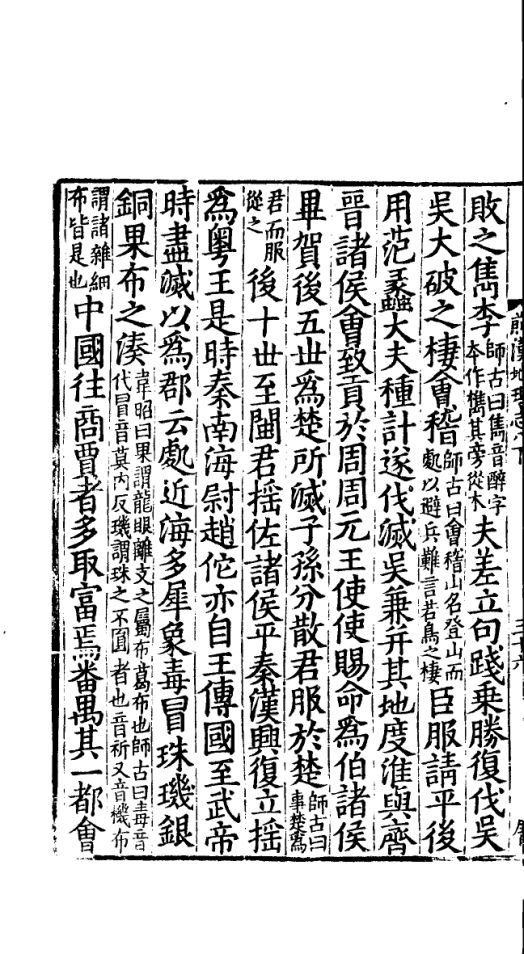 敗之雋李師古曰雋音醉字本作檇其旁從木夫差立句踐乗勝復伐吳
吳大破之棲會稽師古曰會稽山名登山而處以避兵難言若鳥之棲臣服請平後
用范蠡大夫種計遂伐滅吳兼并其地度淮與齊
晉諸侯會致貢於周周元王使使賜命爲伯諸侯
畢賀後五世爲楚所滅子孫分散君服於楚師古曰事楚爲
君而服從之後十世至閩君揺佐諸侯平秦漢興復立揺
爲粤王是時秦南海尉趙佗亦自王傳國至武帝
時盡滅以爲郡云處近海多犀象毒冒珠璣銀
銅果布之湊韋昭曰果謂龍眼離支之屬布葛布也師古曰毒音代冒音莫内反璣謂珠之不圓者也音祈又音機布
謂諸雜細布皆是也中國往商賈者多取富焉番禺其一都會
前漢地理志下